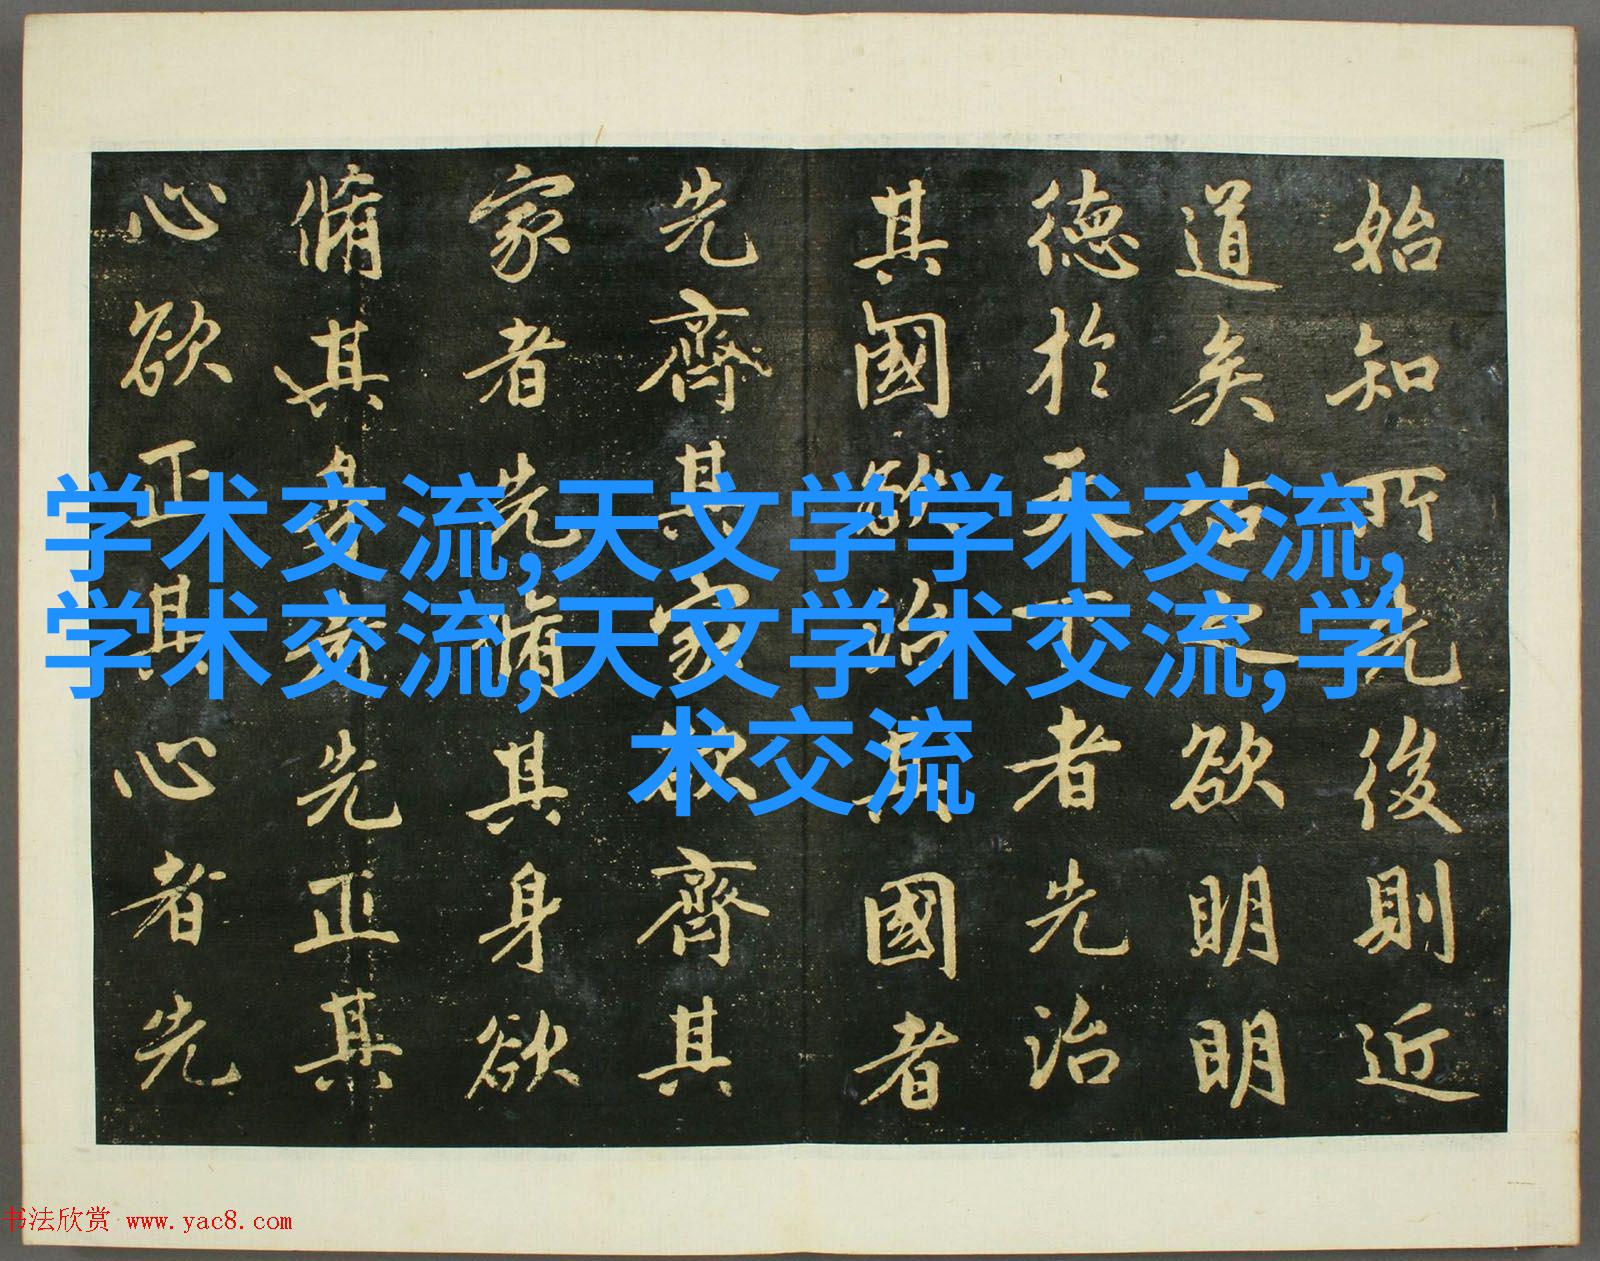 始知所先後則近
道矣古之欲明明
德於天下者先治
其國欲治其國者
先齊其家欲齊其
家者先脩其身欲
脩其身者先正其
心欲正其心者先
学术交流,天文学学术交流,
学术交流,天文学术交流,学
术交流
书法欣赏 www.yac8.com